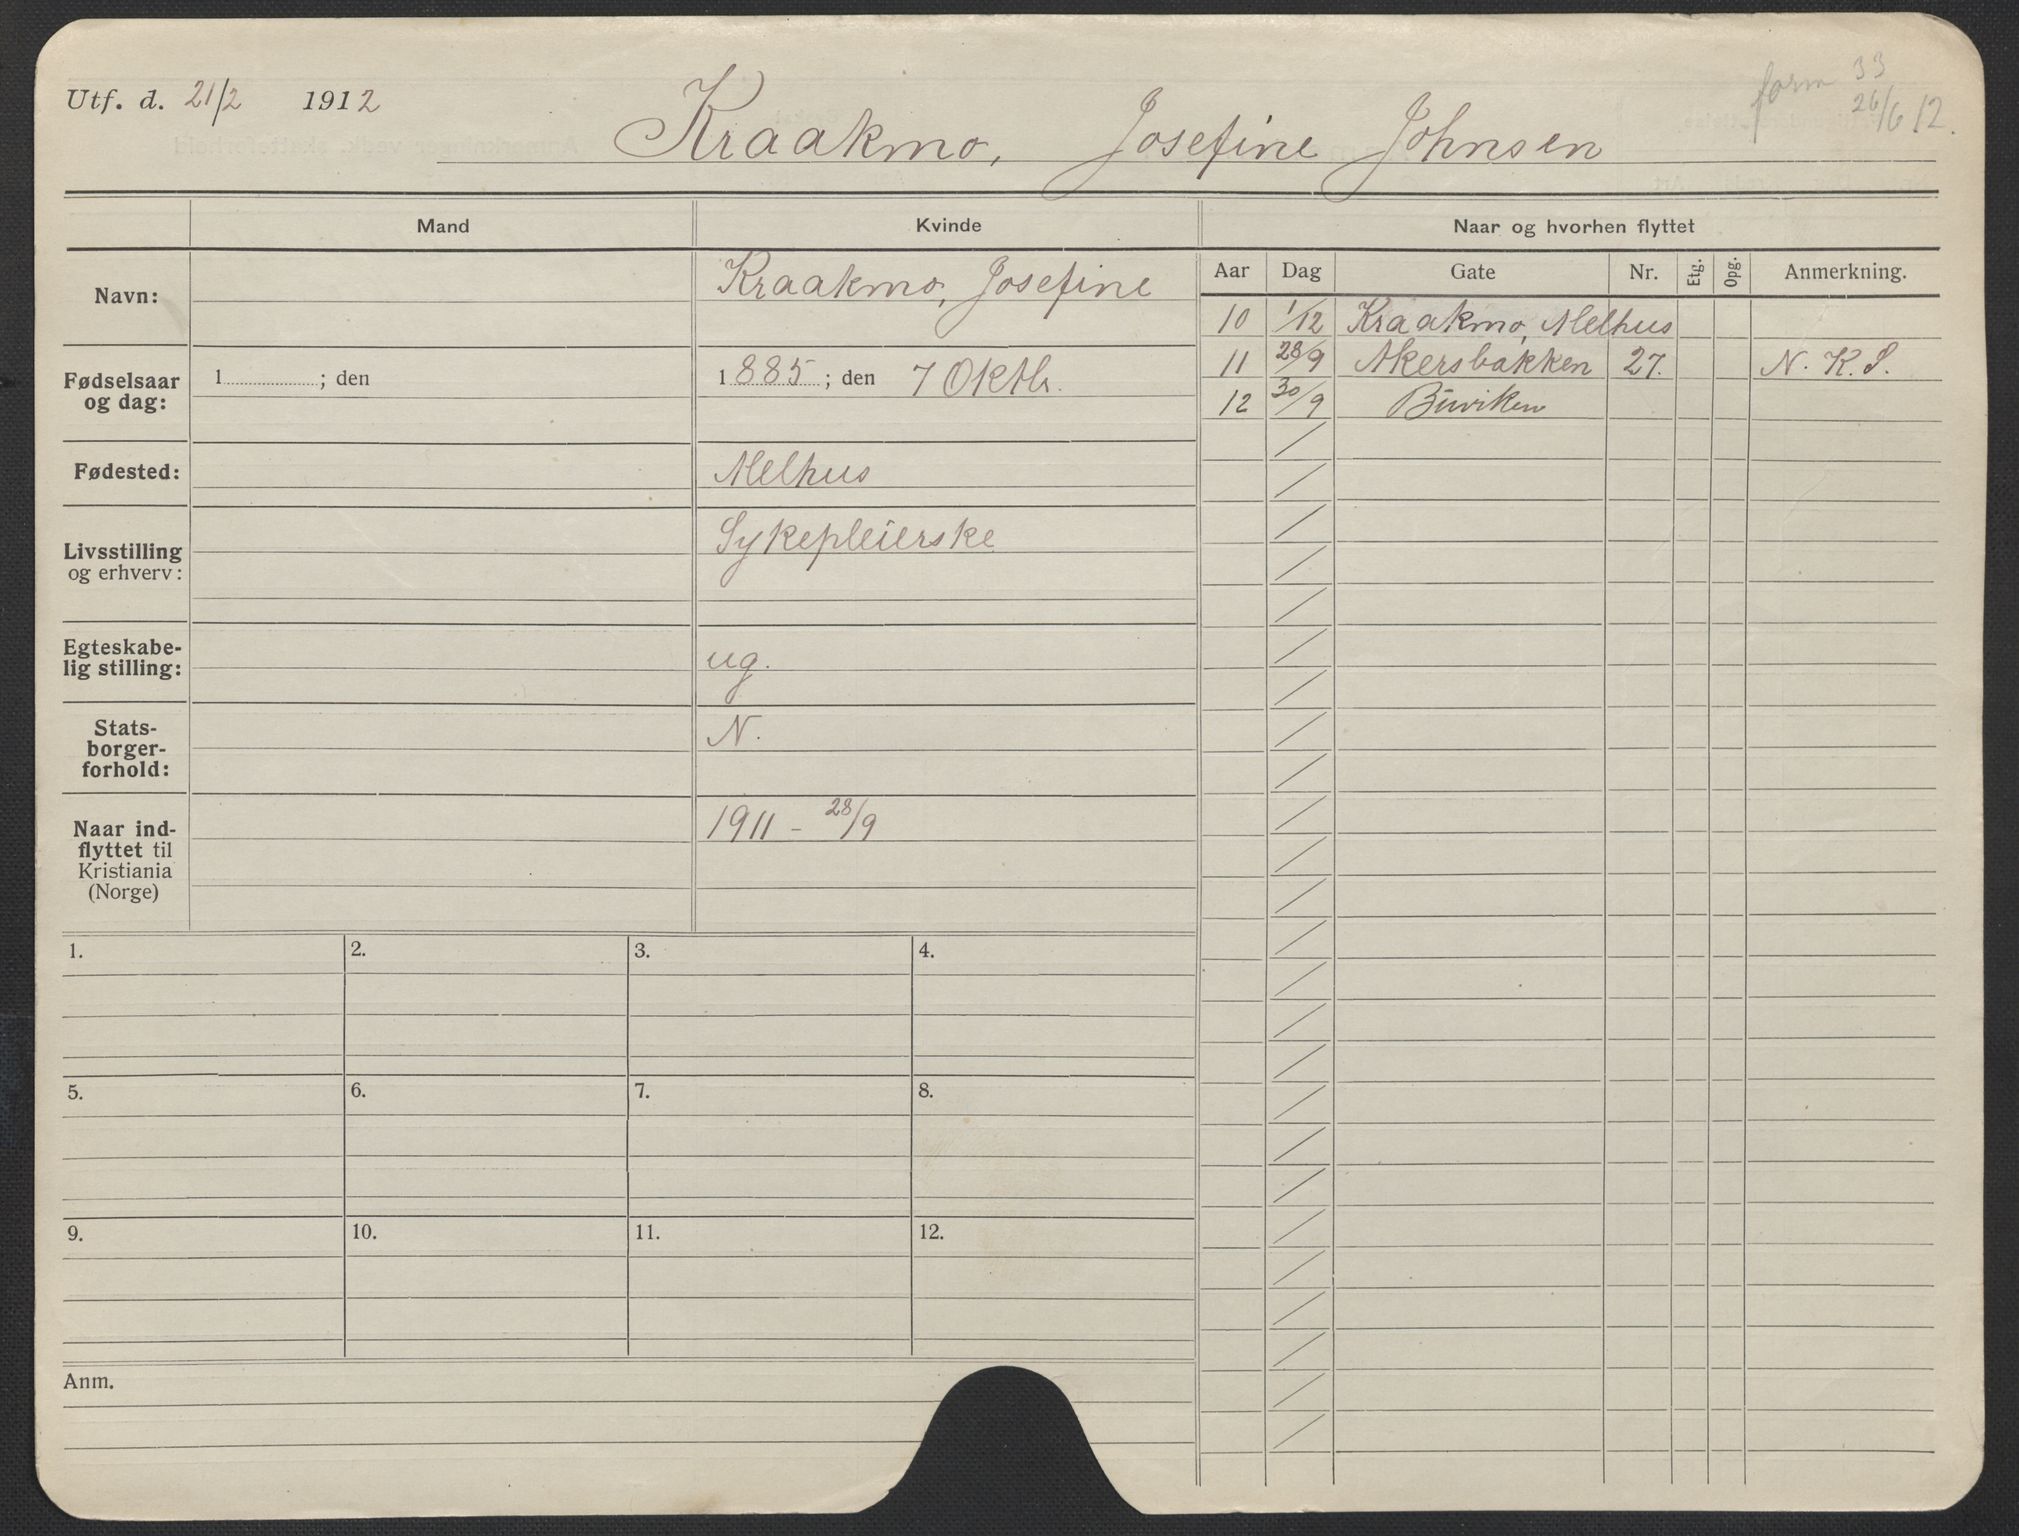 Utf. d. 21/2 1912
Kraakmo, Josefine Johnsen
form 33
26/6 12.
Mand
Kvinde
Naar og hvorhen flyttet
Navn:
Kraakmo, Josefine
Fødselsaar
og dag:
1 ; den
1885 ; den 7 Oktbr.
Fødested:
Melhus
Livsstilling
og erhverv:
Sykepleierske
Egteskabe-
lig stilling:
ug.
Stats-
borger-
forhold:
N.
Naar ind-
flyttet til
Kristiania
(Norge)
1911 - 28/9
Aar Dag Gate Nr. Etg. Opg. Anmerkning.
10 1/12 Kraakmo, Melhus
11 28/9 Akersbakken 27. N. K. S.
12 30/9 Buviken
1. 2. 3. 4.
5. 6. 7. 8.
9. 10. 11. 12.
Anm.